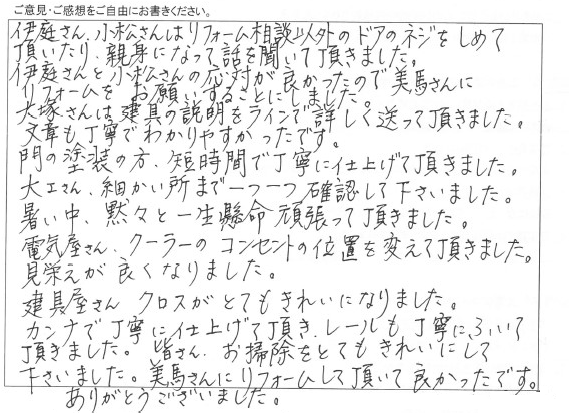 ご意見・ご感想をご自由にお書きください。
伊庭さん、小松さんはリフォーム相談以外のドアのネジをしめて
頂いたり、親身になって話を聞いて頂きました。
伊庭さんと小松さんの応対が良かったので美馬さんに
リフォームをお願いすることにしました。
大塚さんは建具の説明をラインで詳しく送って頂きました。
文章も丁寧でわかりやすかったです。
門の塗装の方、短時間で丁寧に仕上げて頂きました。
大工さん、細かい所まで一つ一つ確認して下さいました。
暑い中、黙々と一生懸命頑張って頂きました。
電気屋さん、クーラーのコンセントの位置を変えて頂きました。
見栄えが良くなりました。
建具屋さん クロスがとてもきれいになりました。
カンナで丁寧に仕上げて頂き、レールも丁寧にふいて
頂きました。皆さん、お掃除をとてもきれいにして
下さいました。美馬さんにリフォームして頂いて良かったです。
ありがとうございました。